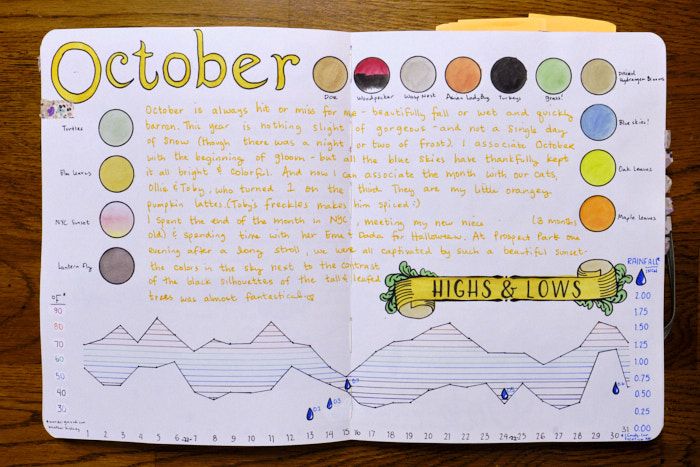 October
Doe
Woodpecker
Wasp Nest
Asian Lady Bug
Turkeys
grass!
Dried
Hydrangea Blooms
Turtles
Elm leaves
NYC Sunset
Lantern Fly
Blue skies!
Oak Leaves
Maple leaves
October is always hit or miss for me - beautifully fall or wet and quickly
barron. This year is nothing slight of gorgeous - and not a single day
of snow (though there was a night or two of frost). I associate October
with the beginning of gloom - but all the blue skies have thankfully kept
it all bright & colorful. And now I can associate the month with our cats,
Ollie & Toby, who turned 1 on the third. They are my little orangey
pumpkin lattes. (Toby's freckles makes him spiced :)
I spent the end of the month in NYC, meeting my new niece (3 months
old) & spending time with her Ema & Dada for Halloween. At Prospect Park one
evening after a long stroll, we were all captivated by such a beautiful sunset-
the colors in the sky next to the contrast
of the black silhouettes of the tall & leafed
trees was almost fantastical.
HIGHS & LOWS
RAINFALL*
inch
OF*
90
80
70
60
50
40
30
2.00
1.75
1.50
1.25
1.00
0.75
0.50
0.25
0.00
0.2
0.3
1 2 3 4 5 6 7 8 9 10 11 12 13 14 15 16 17 18 19 20 21 22 23 24 25 26 27 28 29 30 31